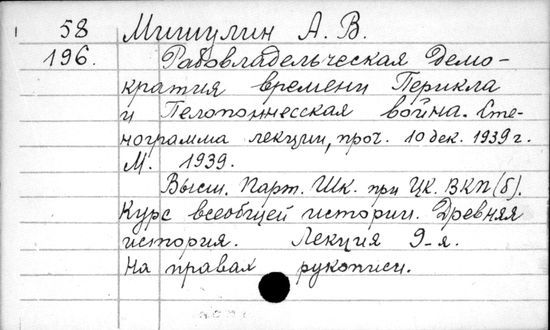 58 Мишулин А. В.
196. Рабовладельческая демо-
кратия времени Перикла
и Пелопоннесская война. Сте-
нограмма лекции, проч. 10 дек. 1939 г.
М. 1939.
Высш. Парт. Шк. при ЦК. ВКП(б).
Курс всеобщей истории. Древняя
история. Лекция 9-я.
На правах рукописи.